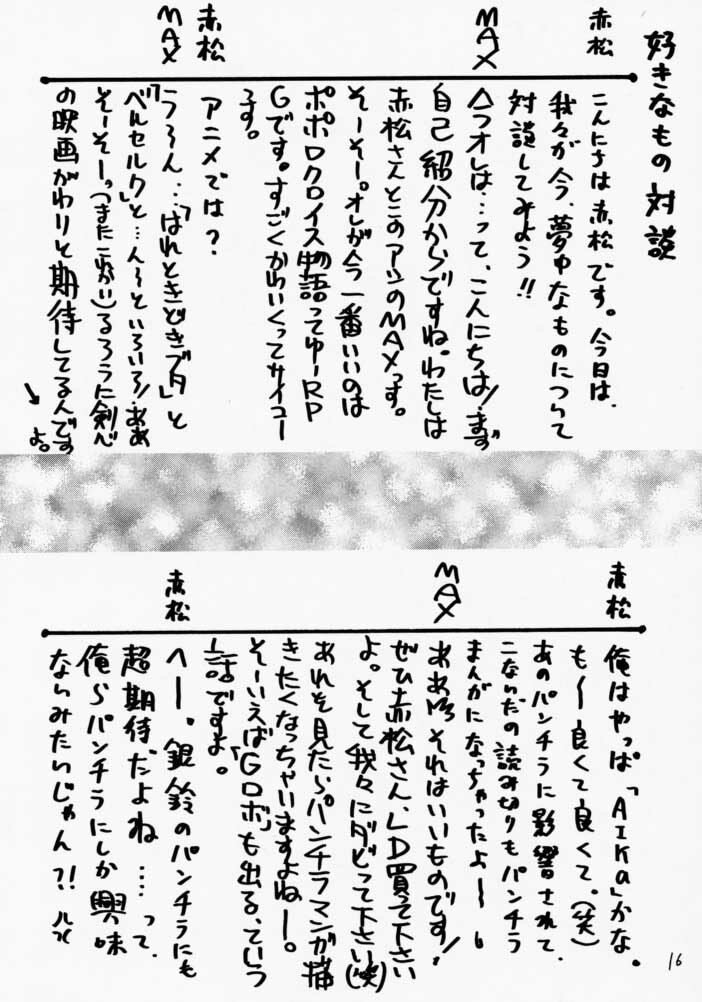 好きなもの対談
赤松
こんにちは赤松です。今日は、
我々が今、夢中なものについて
対談してみよう!!
MAX
へつオレは…って、こんにちは!まず
自己紹分からですね。わたしは
赤松さんとこのアシのMAXっす。
そーそー。オレが今一番いいのは
ポポロクロイス物語ってゆーRP
Gです。すごくかわいくってサイコー
です。
赤松
アニメでは?
MAX
う~ん…「はれときどきブタ」と
「ベルセルク」と…ん~といろいろ!ああ
そーそーっ(またこれかい)るろうに剣心
の映画がわりと期待してるんです
よ。
赤松
俺はやっぱ「AIKa」かな。
も~良くて良くて。(笑)
あのパンチラに影響されて、
こないだの読み切りもパンチラ
まんがになっちゃったよ~
MAX
ああ それはいいものです!
ぜひ赤松さん、LD買って下さい
よ。そして我々にダビって下さい(笑)
あれを見たらパンチラマンガ描
きたくなっちゃいますよねー。
そーいえば「Gロボ」も出る、ていう
話ですよ。
赤松
へー。銀鈴のパンチラにも
超期待だよね……って、
俺らパンチラにしか興味
ないみたいじゃん?!
16